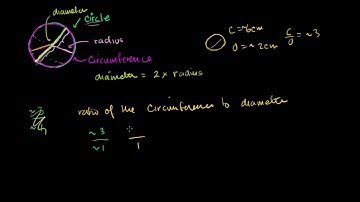 diameter
circle
radius
Circumference
diameter = 2 x radius
C = ~6cm
D = ~2cm
C/D = ~3
ratio of the Circumference to diameter
~3
~1
1